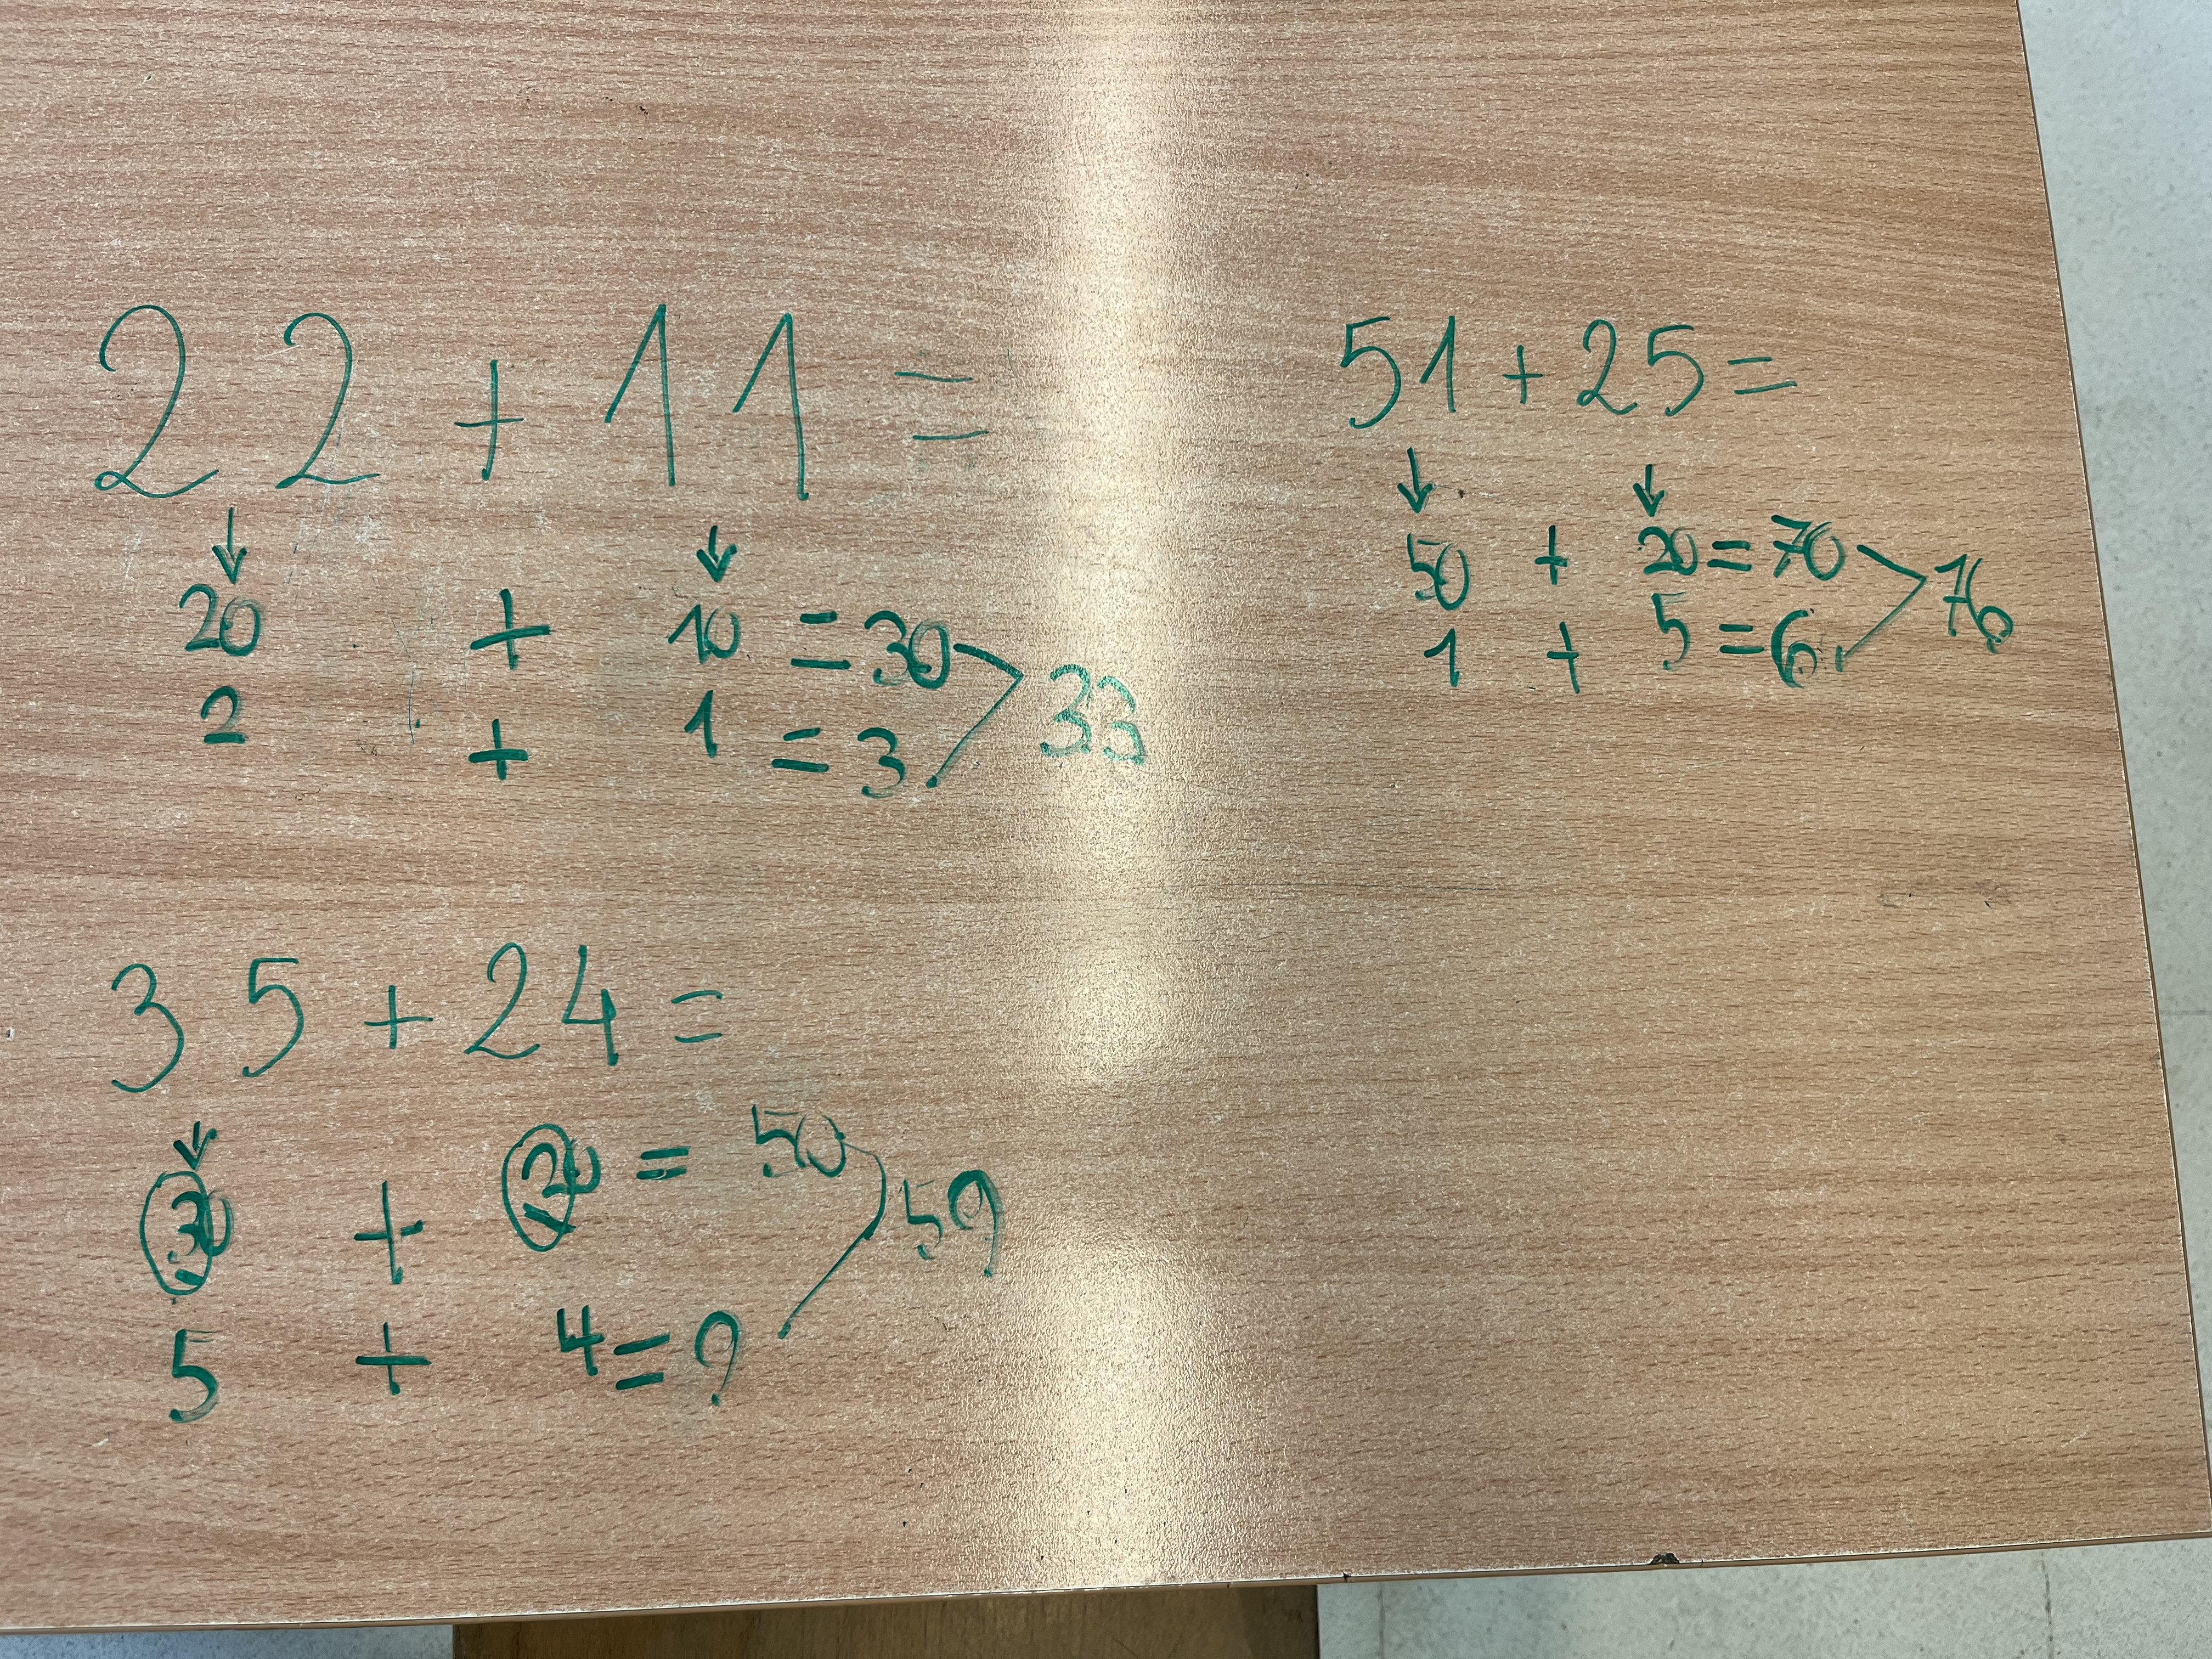 22 + 11 =
↓ ↓
20 + 10 = 30
2 + 1 = 3
33
51 + 25 =
↓ ↓
50 + 20 = 70
1 + 5 = 6
76
35 + 24 =
↓
30 + 20 = 50
5 + 4 = 9
59